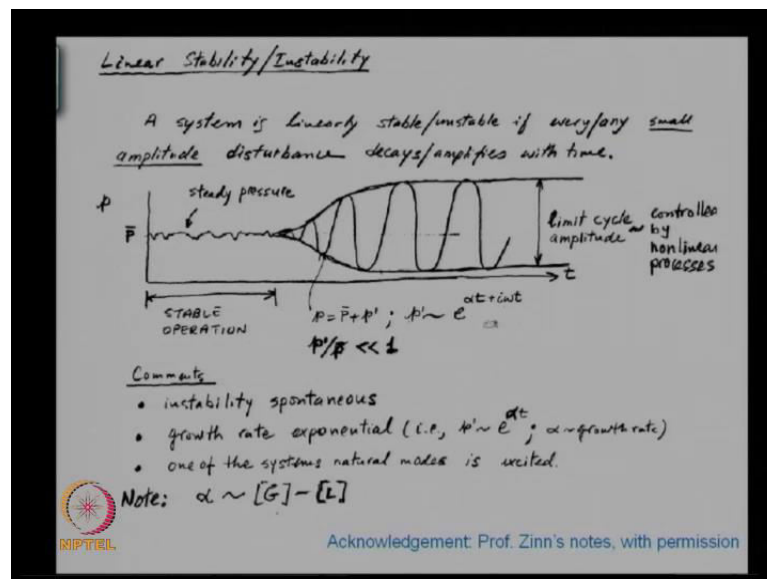 Linear Stability/Instability
A system is linearly stable/unstable if every/any small
amplitude disturbance decays/amplifies with time.
p
steady pressure
p̄
limit cycle ~ controlled
amplitude by
nonlinear
processes
t
STABLE
OPERATION
p = p̄ + p' ; p' ~ e^{αt+iωt}
p'/p̄ << 1
Comments
• instability spontaneous
• growth rate exponential (i.e., p' ~ e^{αt}; α ~ growth rate)
• one of the systems natural modes is excited.
Note: α ~ [G] - [L]
NPTEL
Acknowledgement: Prof. Zinn's notes, with permission